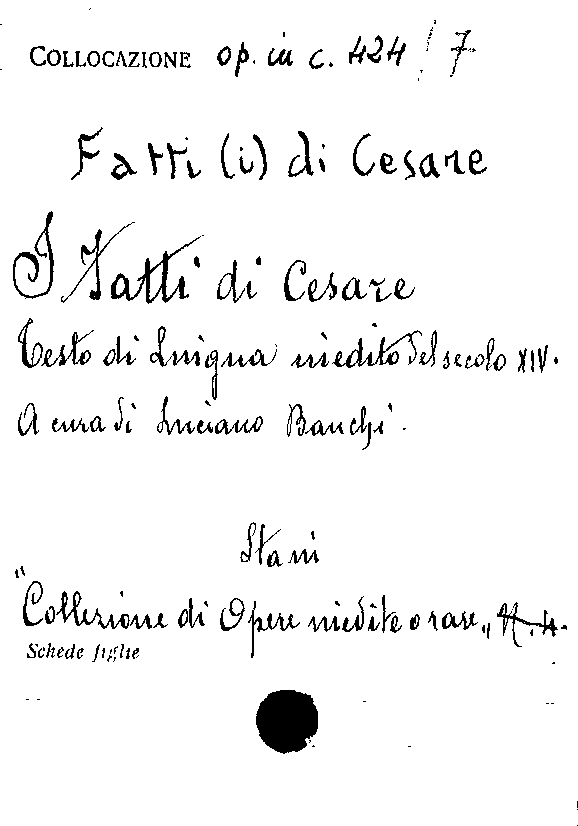 COLLOCAZIONE op. in c. 424 / 7
Fatti (i) di Cesare
I Fatti di Cesare
Testo di Lingua inedito del secolo XIV.
A cura di Luciano Banchi.
Stani
"Collezione di Opere inedite o rare" N. 4.
Schede figlie